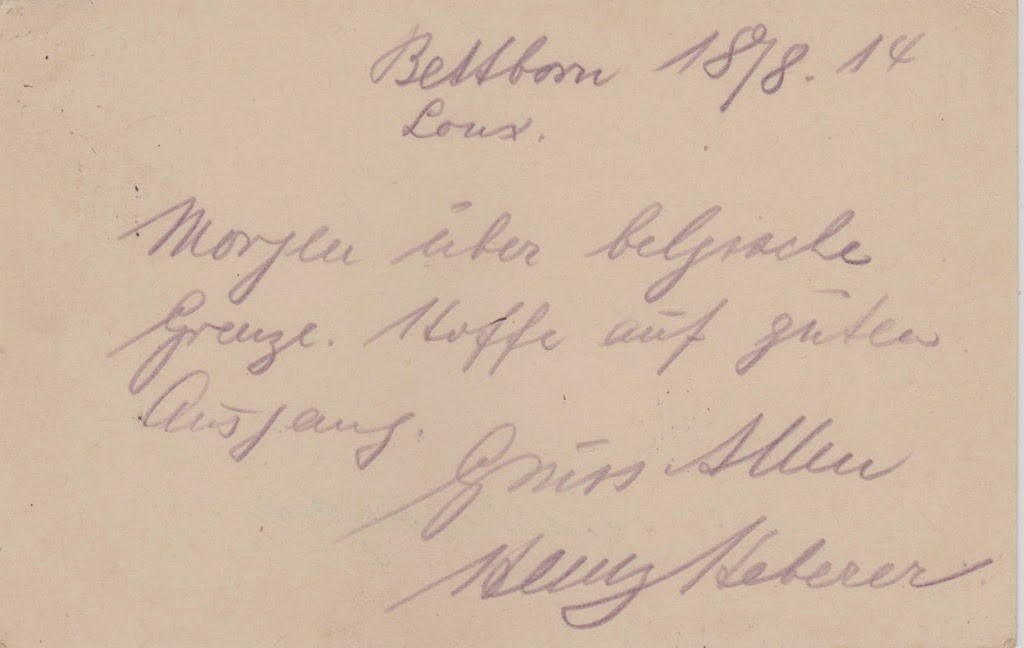 Bettborn 18/8. 14
Loux.
Morgen über belgische
Grenze. Hoffe auf guten
Ausgang.
Gruss Allen
Heinz Heberer